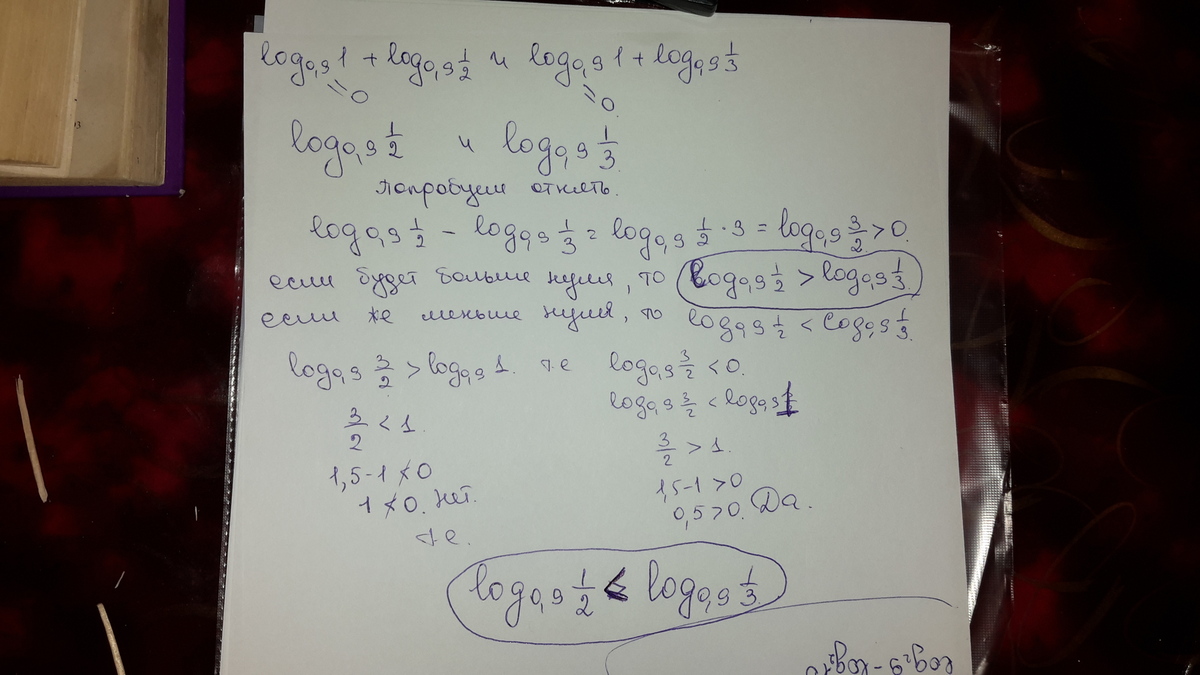 log₀,₉1 + log₀,₉ 1/2 и log₀,₉1 + log₀,₉ 1/3
=0 =0
log₀,₉ 1/2 и log₀,₉ 1/3
Попробуем отнять.
log₀,₉ 1/2 - log₀,₉ 1/3 = log₀,₉ 1/2 · 3 = log₀,₉ 3/2 > 0.
если будет больше нуля, то log₀,₉ 1/2 > log₀,₉ 1/3
если же меньше нуля, то log₀,₉ 1/2 < log₀,₉ 1/3.
log₀,₉ 3/2 > log₀,₉ 1. т.е log₀,₉ 3/2 < 0.
log₀,₉ 3/2 < log₀,₉ 1
3/2 < 1. 3/2 > 1.
1,5-1 ≮ 0 1,5-1 > 0
1 ≮ 0. нет. 0,5 > 0. Да.
т.е.
log₀,₉ 1/2 < log₀,₉ 1/3
log₂9 - log₂10